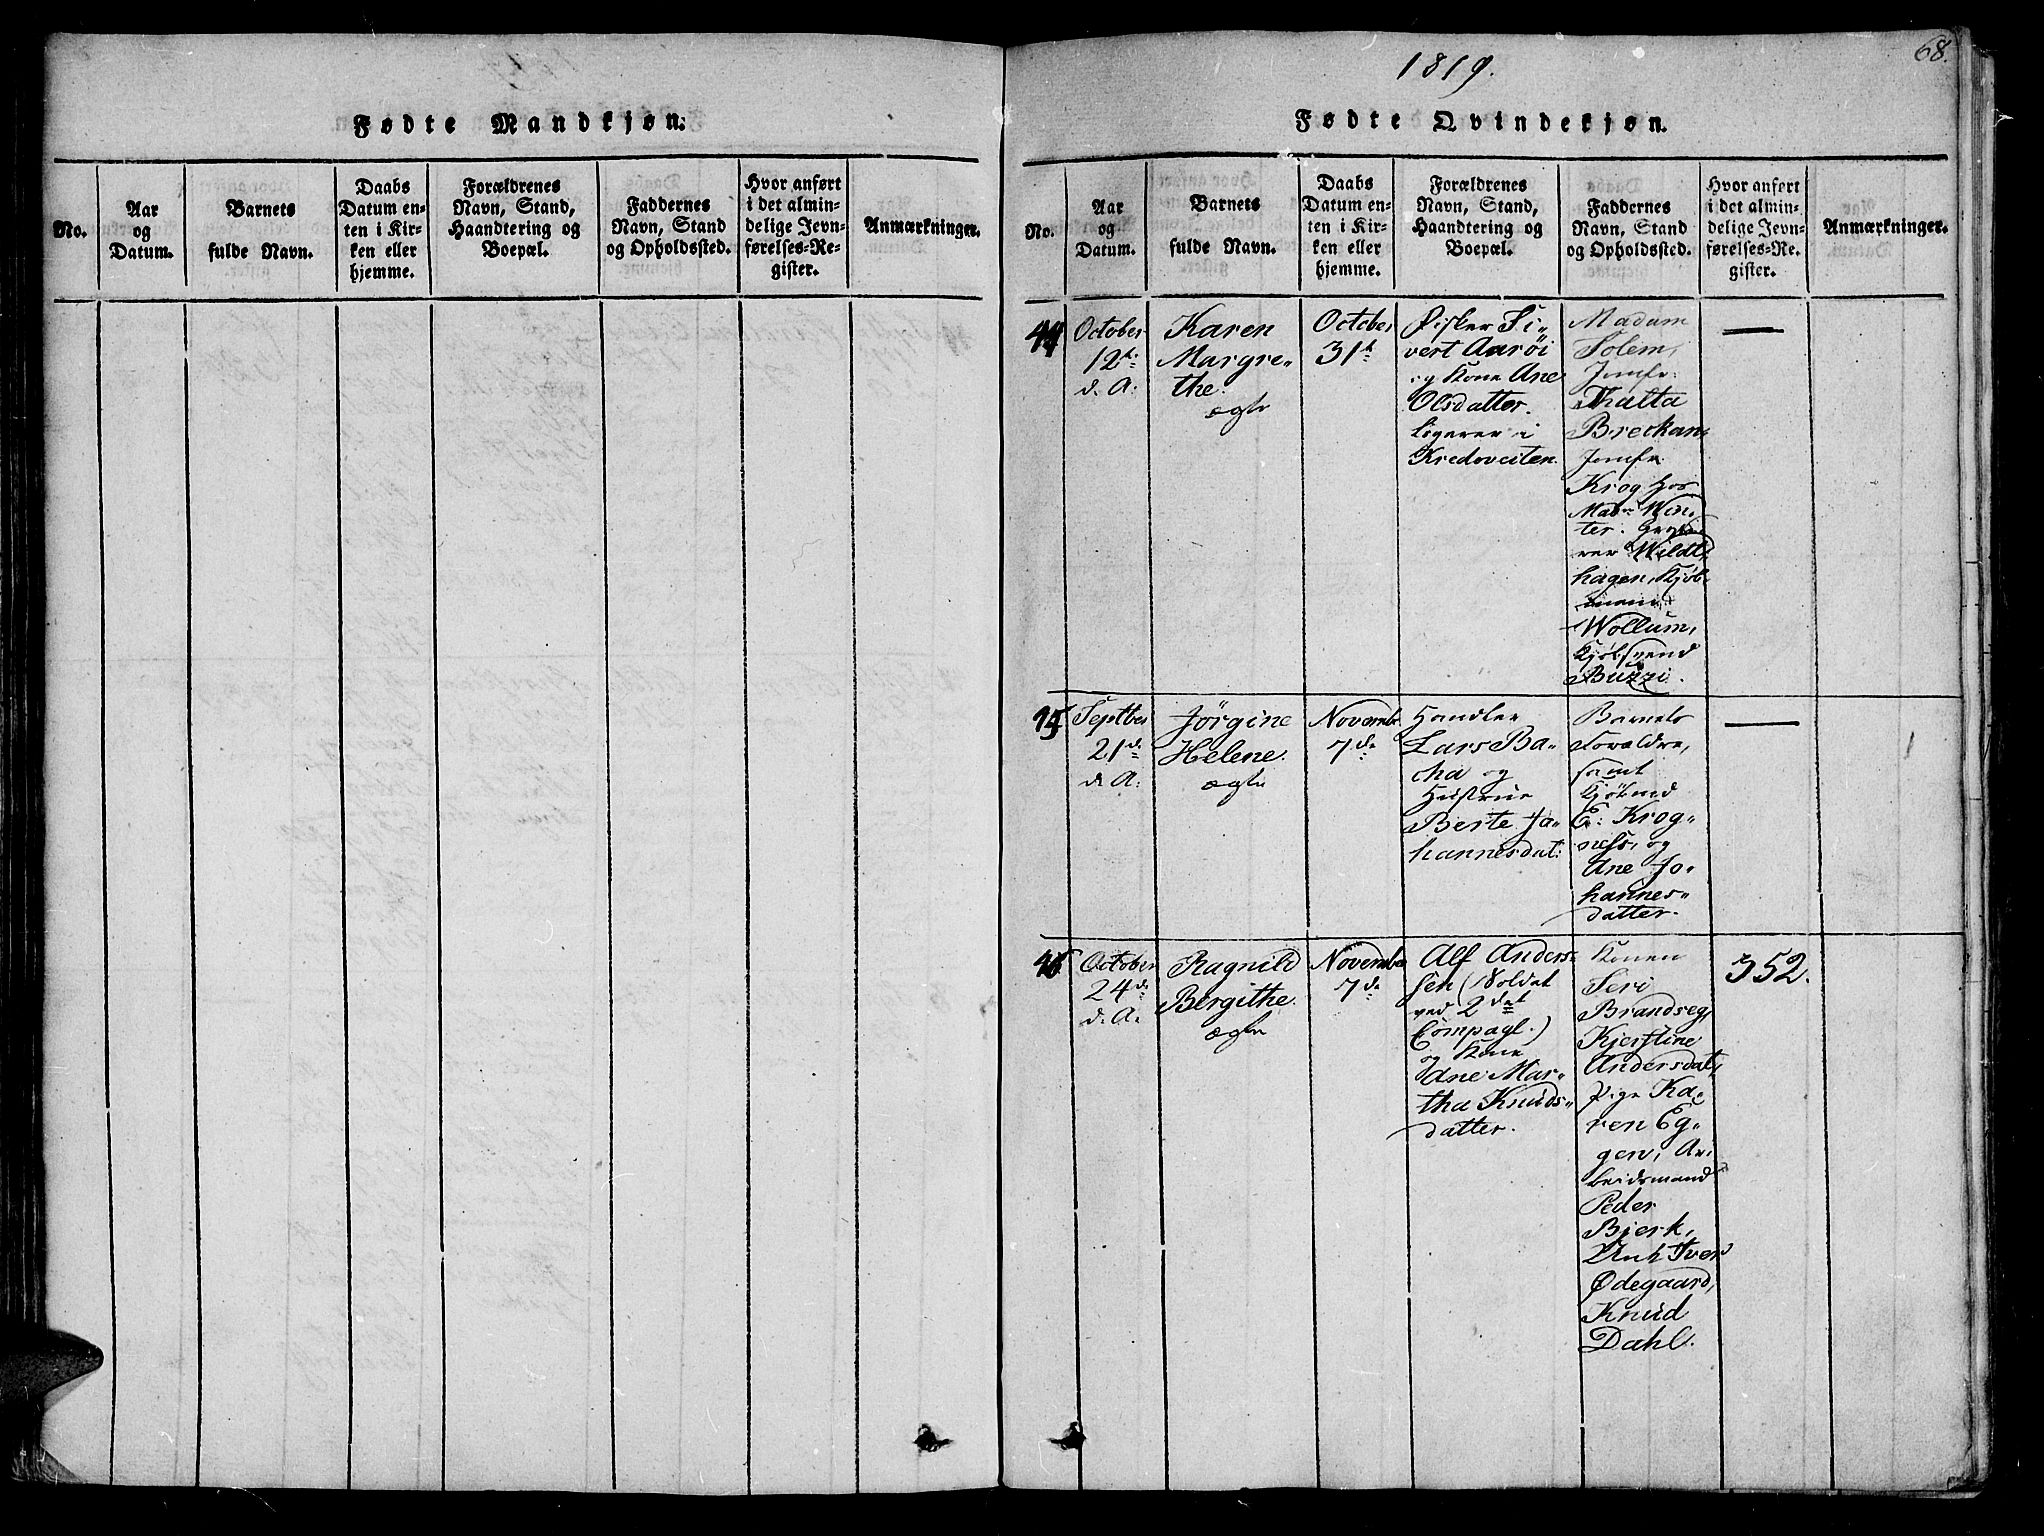 68.
1819.
Fødte Mandkjøn.
No.
Aar
og
Datum.
Barnets
fulde Navn.
Daabs
Datum en-
ten i Kir-
ken eller
hjemme.
Forældrenes
Navn, Stand,
Haandtering og
Boepæl.
Faddernes
Navn, Stand
og Opholdssted.
Hvor anført
i det almin-
delige Jevn-
førelses-Re-
gister.
Anmærkninger.
Fødte Qvindekjøn.
No.
Aar
og
Datum.
Barnets
fulde Navn.
Daabs
Datum en-
ten i Kir-
ken eller
hjemme.
Forældrenes
Navn, Stand,
Haandtering og
Boepæl.
Faddernes
Navn, Stand
og Opholdssted.
Hvor anført
i det almin-
delige Jevn-
førelses-Re-
gister.
Anmærkninger.
44
October
12te
d. A.
Karen
Margre-
the.
ægte
October
31te
Fisker Si-
vert Aarøi
og Kone Ane
Olsdatter.
Logerer i
Kredoveiten.
Madam
Solem,
Jomfr.
Thalta
Breckan,
Jomfr.
Krog hos
Madm Win-
ter.
Wildt
hagen, Kjøb-
mand
Wollum,
Kjøbsvend
Buzzi.
45
Septber
21de
d. A.
Jørgine
Helene.
ægte
Novembr
7de
Handler
Lars Ba-
cha og
Hustrue
Berte Jo-
hannesdat:
Barnets
Forældre,
samt
Kjøbmd
E. Krog-
ness, og
Ane Jo-
hannes-
datter.
46
October
24de
d. A.
Ragnild
Bergithe.
ægte
November
7de
Alf Anders-
sen (Soldat
ved 2det
Compagl.)
og Kone
Ane Mar-
tha Knuds-
datter.
Konen
Seri
Brandseg,
Kjerstine
Andersdat,
Pige Ka-
ren Eg-
gen, Ar-
beidsmand
Peder
Bjerk,
Unk Iver
Ødegaard,
Knud
Dahl.
352.